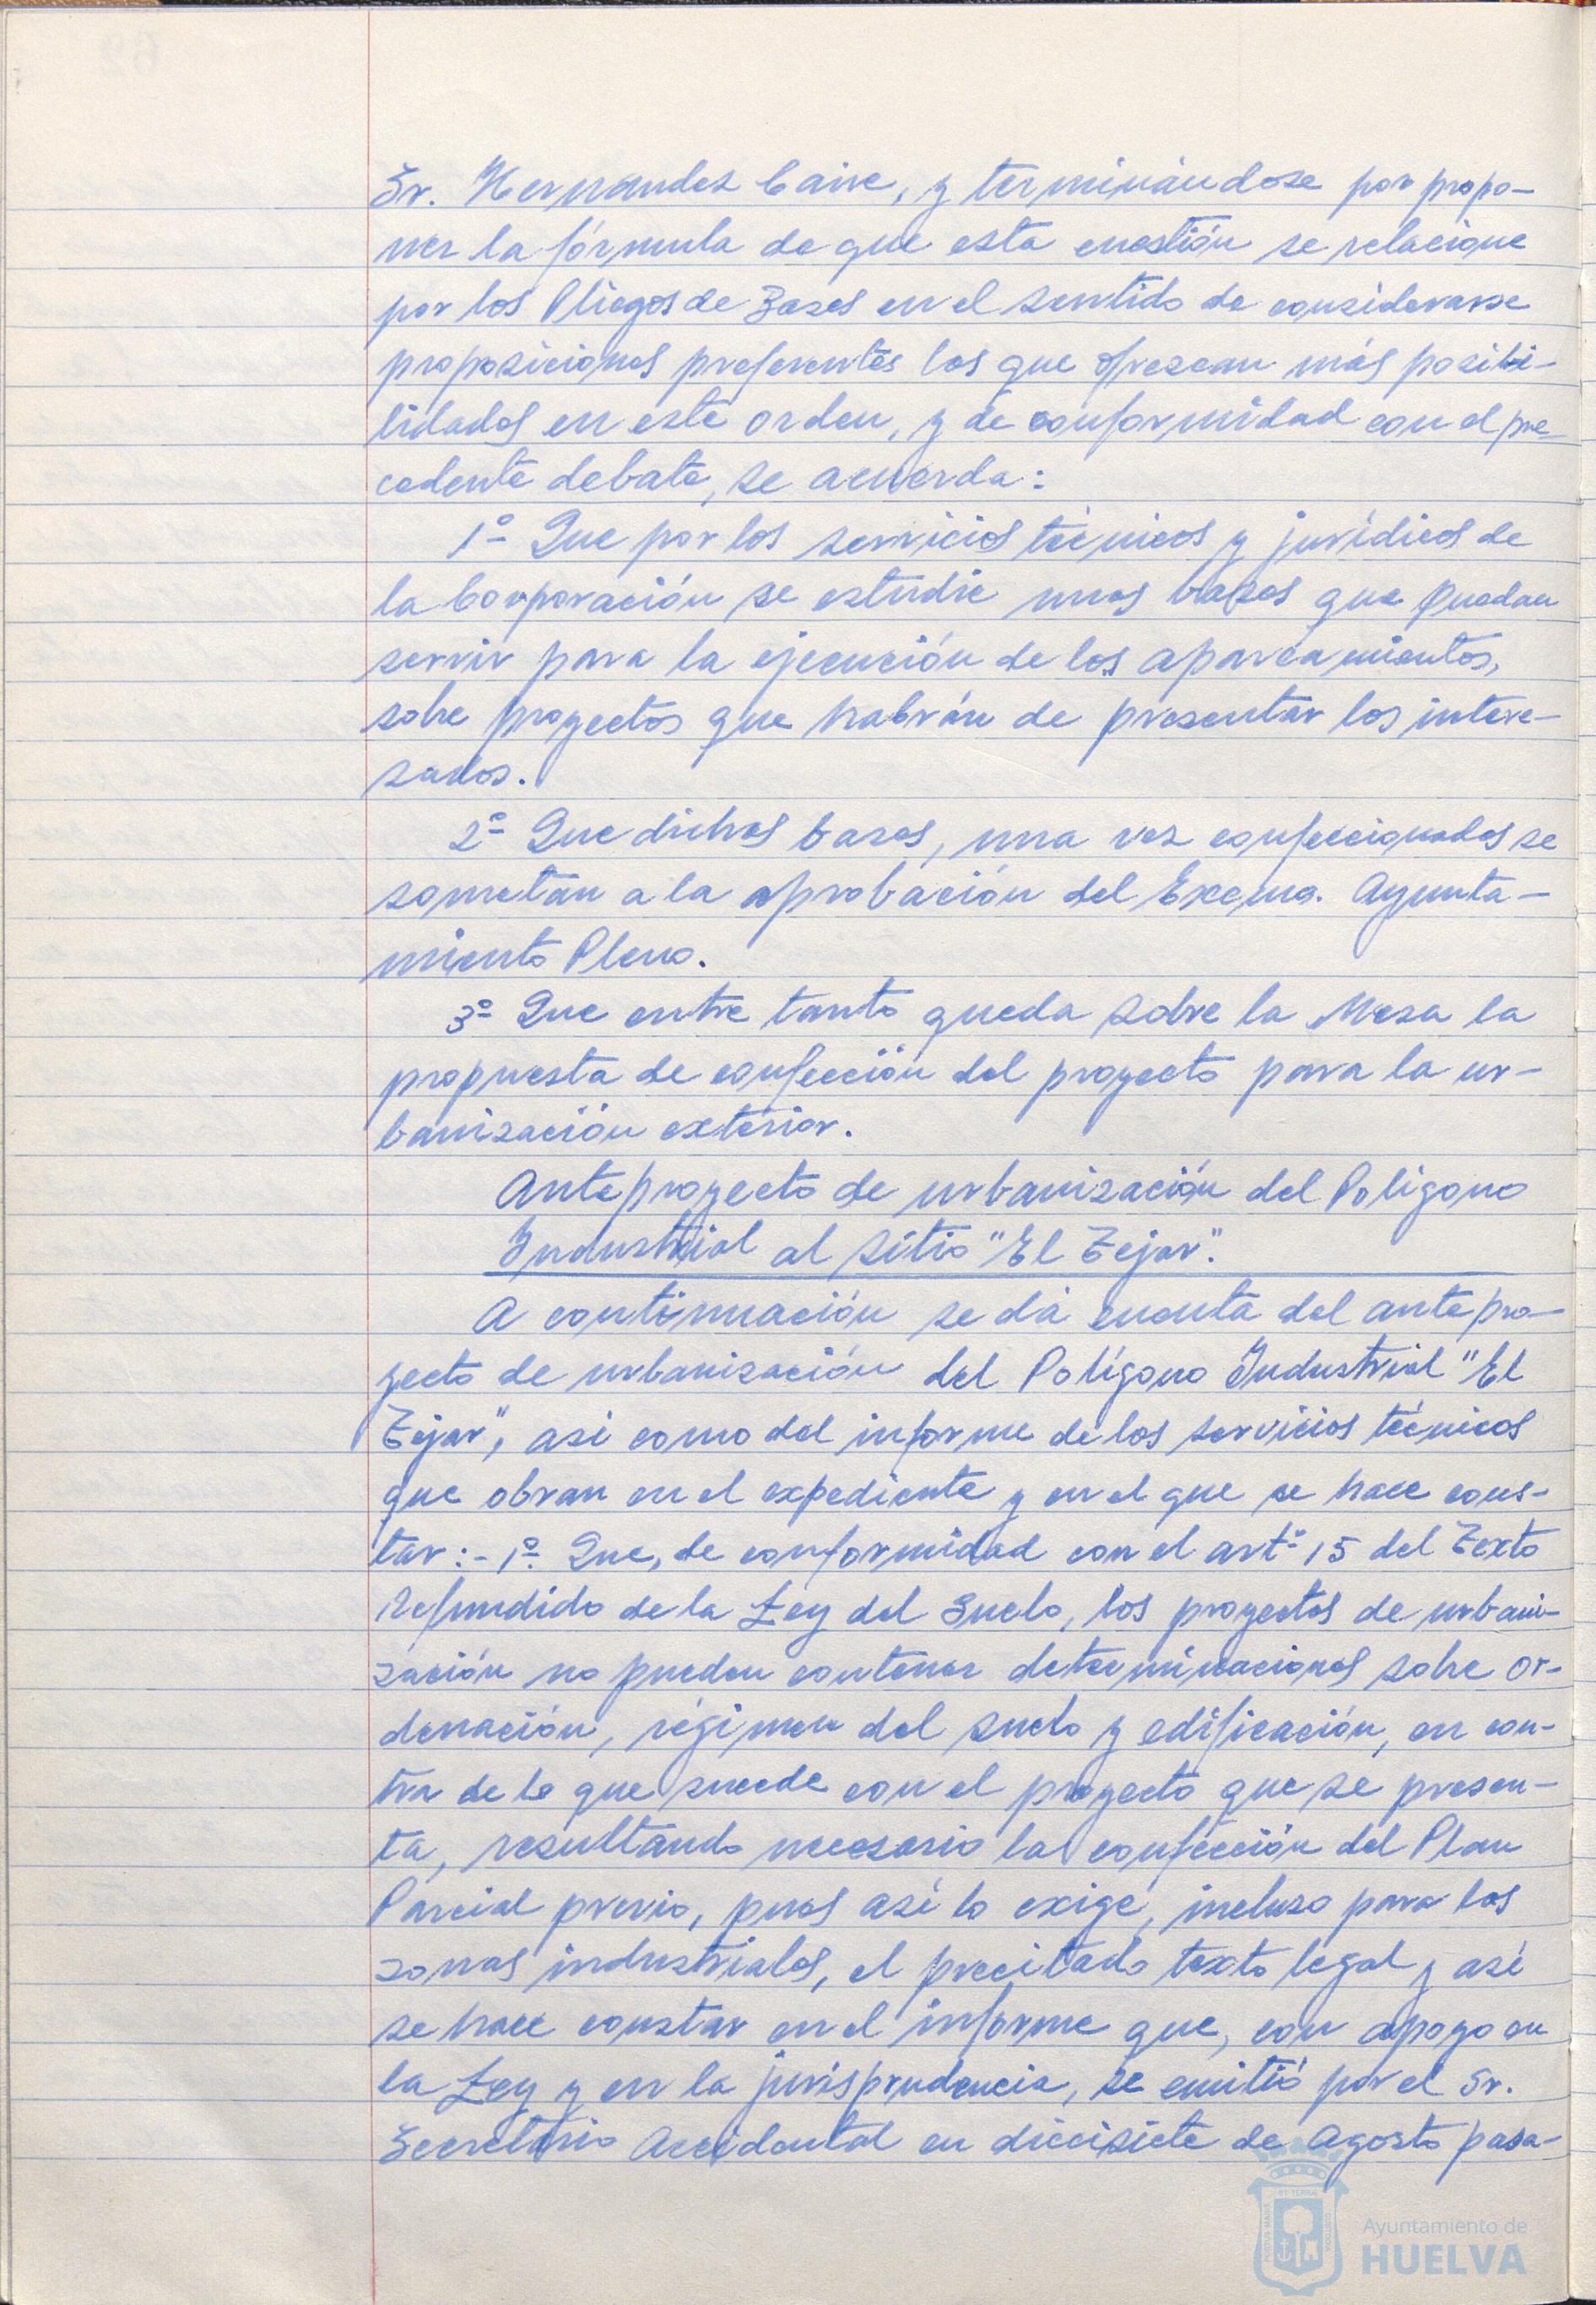 Sr. Hernandez Caire, y terminándose por propo-
ner la fórmula de que esta cuestión se relacione
por los Pliegos de Bases en el sentido de considerarse
proposiciones preferentes las que ofrezcan más posibi-
lidades en este orden, y de conformidad con el pre-
cedente debate, se acuerda:
1º Que por los servicios técnicos y jurídicos de
la Corporación se estudie unas bases que puedan
servir para la ejecución de los aparcamientos,
sobre proyectos que habrán de presentar los intere-
sados.
2º Que dichas bases, una vez confeccionadas se
sometan a la aprobación del Excmo. Ayunta-
miento Pleno.
3º Que entre tanto queda sobre la Mesa la
propuesta de confección del proyecto para la ur-
banización exterior.
Anteproyecto de urbanización del Poligono
Industrial al sitio "El Tejar".
A continuación se dá cuenta del antepro-
yecto de urbanización del Polígono Industrial "El
Tejar", asi como del informe de los servicios técnicos
que obran en el expediente y en el que se hace cons-
tar:- 1º. Que, de conformidad con el artº 15 del Texto
Refundido de la Ley del Suelo, los proyectos de urbani-
zación no pueden contener determinaciones sobre or-
denación, régimen del suelo y edificación, en con-
tra de lo que sucede con el proyecto que se presen-
ta, resultando necesario la confección del Plan
Parcial previo, pues asi lo exige, incluso para las
zonas industriales, el precitado texto legal y asi
se hace constar en el informe que, con apoyo en
la Ley y en la jurisprudencia, se emitió por el Sr.
Secretario Accidental en diecisiete de Agosto pasa-
Ayuntamiento de
HUELVA